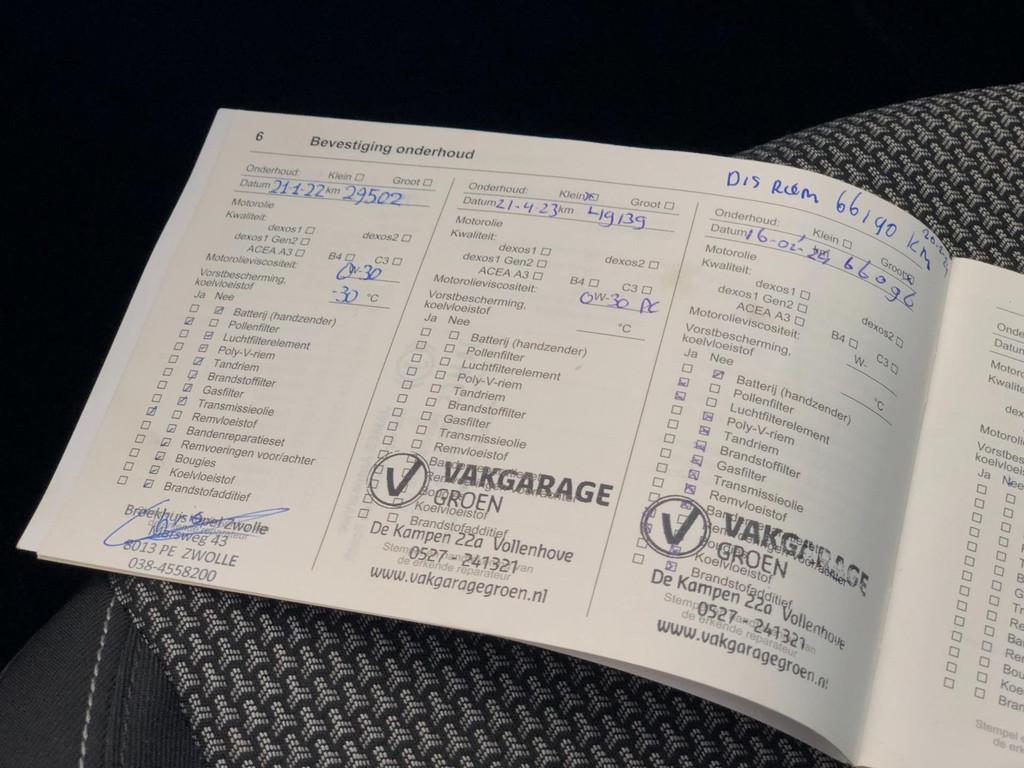 6 Bevestiging onderhoud
Onderhoud: Klein Groot
Datum 21-1-22 km 29502
Motorolie
Kwaliteit:
dexos1
dexos1 Gen2 dexos2
ACEA A3 B4 C3
Motorolieviscositeit: 0W-30
Vorstbescherming,
koelvloeistof -30 °C
Ja Nee
Batterij (handzender)
Pollenfilter
Luchtfilterelement
Poly-V-riem
Tandriem
Brandstoffilter
Gasfilter
Transmissieolie
Remvloeistof
Bandenreparatieset
Remvoeringen voor/achter
Bougies
Koelvloeistof
Brandstofadditief
Broekhuis Opel Zwolle
8013 PE ZWOLLE
038-4558200
Onderhoud: Klein Groot
Datum 21-4-23 km 49139
Motorolie
Kwaliteit:
dexos1
dexos1 Gen2 dexos2
ACEA A3 B4 C3
Motorolieviscositeit: 0W-30
Vorstbescherming,
koelvloeistof °C
Ja Nee
Batterij (handzender)
Pollenfilter
Luchtfilterelement
Poly-V-riem
Tandriem
Brandstoffilter
Gasfilter
Transmissieolie
Remvloeistof
Koelvloeistof
Brandstofadditief
VAKGARAGE
GROEN
De Kampen 22a Vollenhove
0527 - 241321
www.vakgaragegroen.nl
66190 km
Onderhoud: Klein Groot
Datum 16-02- 66096
Motorolie
Kwaliteit:
dexos1
dexos1 Gen2 dexos2
ACEA A3 B4 C3
Motorolieviscositeit: W-
Vorstbescherming,
koelvloeistof °C
Ja Nee
Batterij (handzender)
Pollenfilter
Luchtfilterelement
Poly-V-riem
Tandriem
Brandstoffilter
Gasfilter
Transmissieolie
Remvloeistof
Koelvloeistof
Brandstofadditief
VAKGARAGE
GROEN
De Kampen 22a Vollenhove
0527 - 241321
www.vakgaragegroen.nl